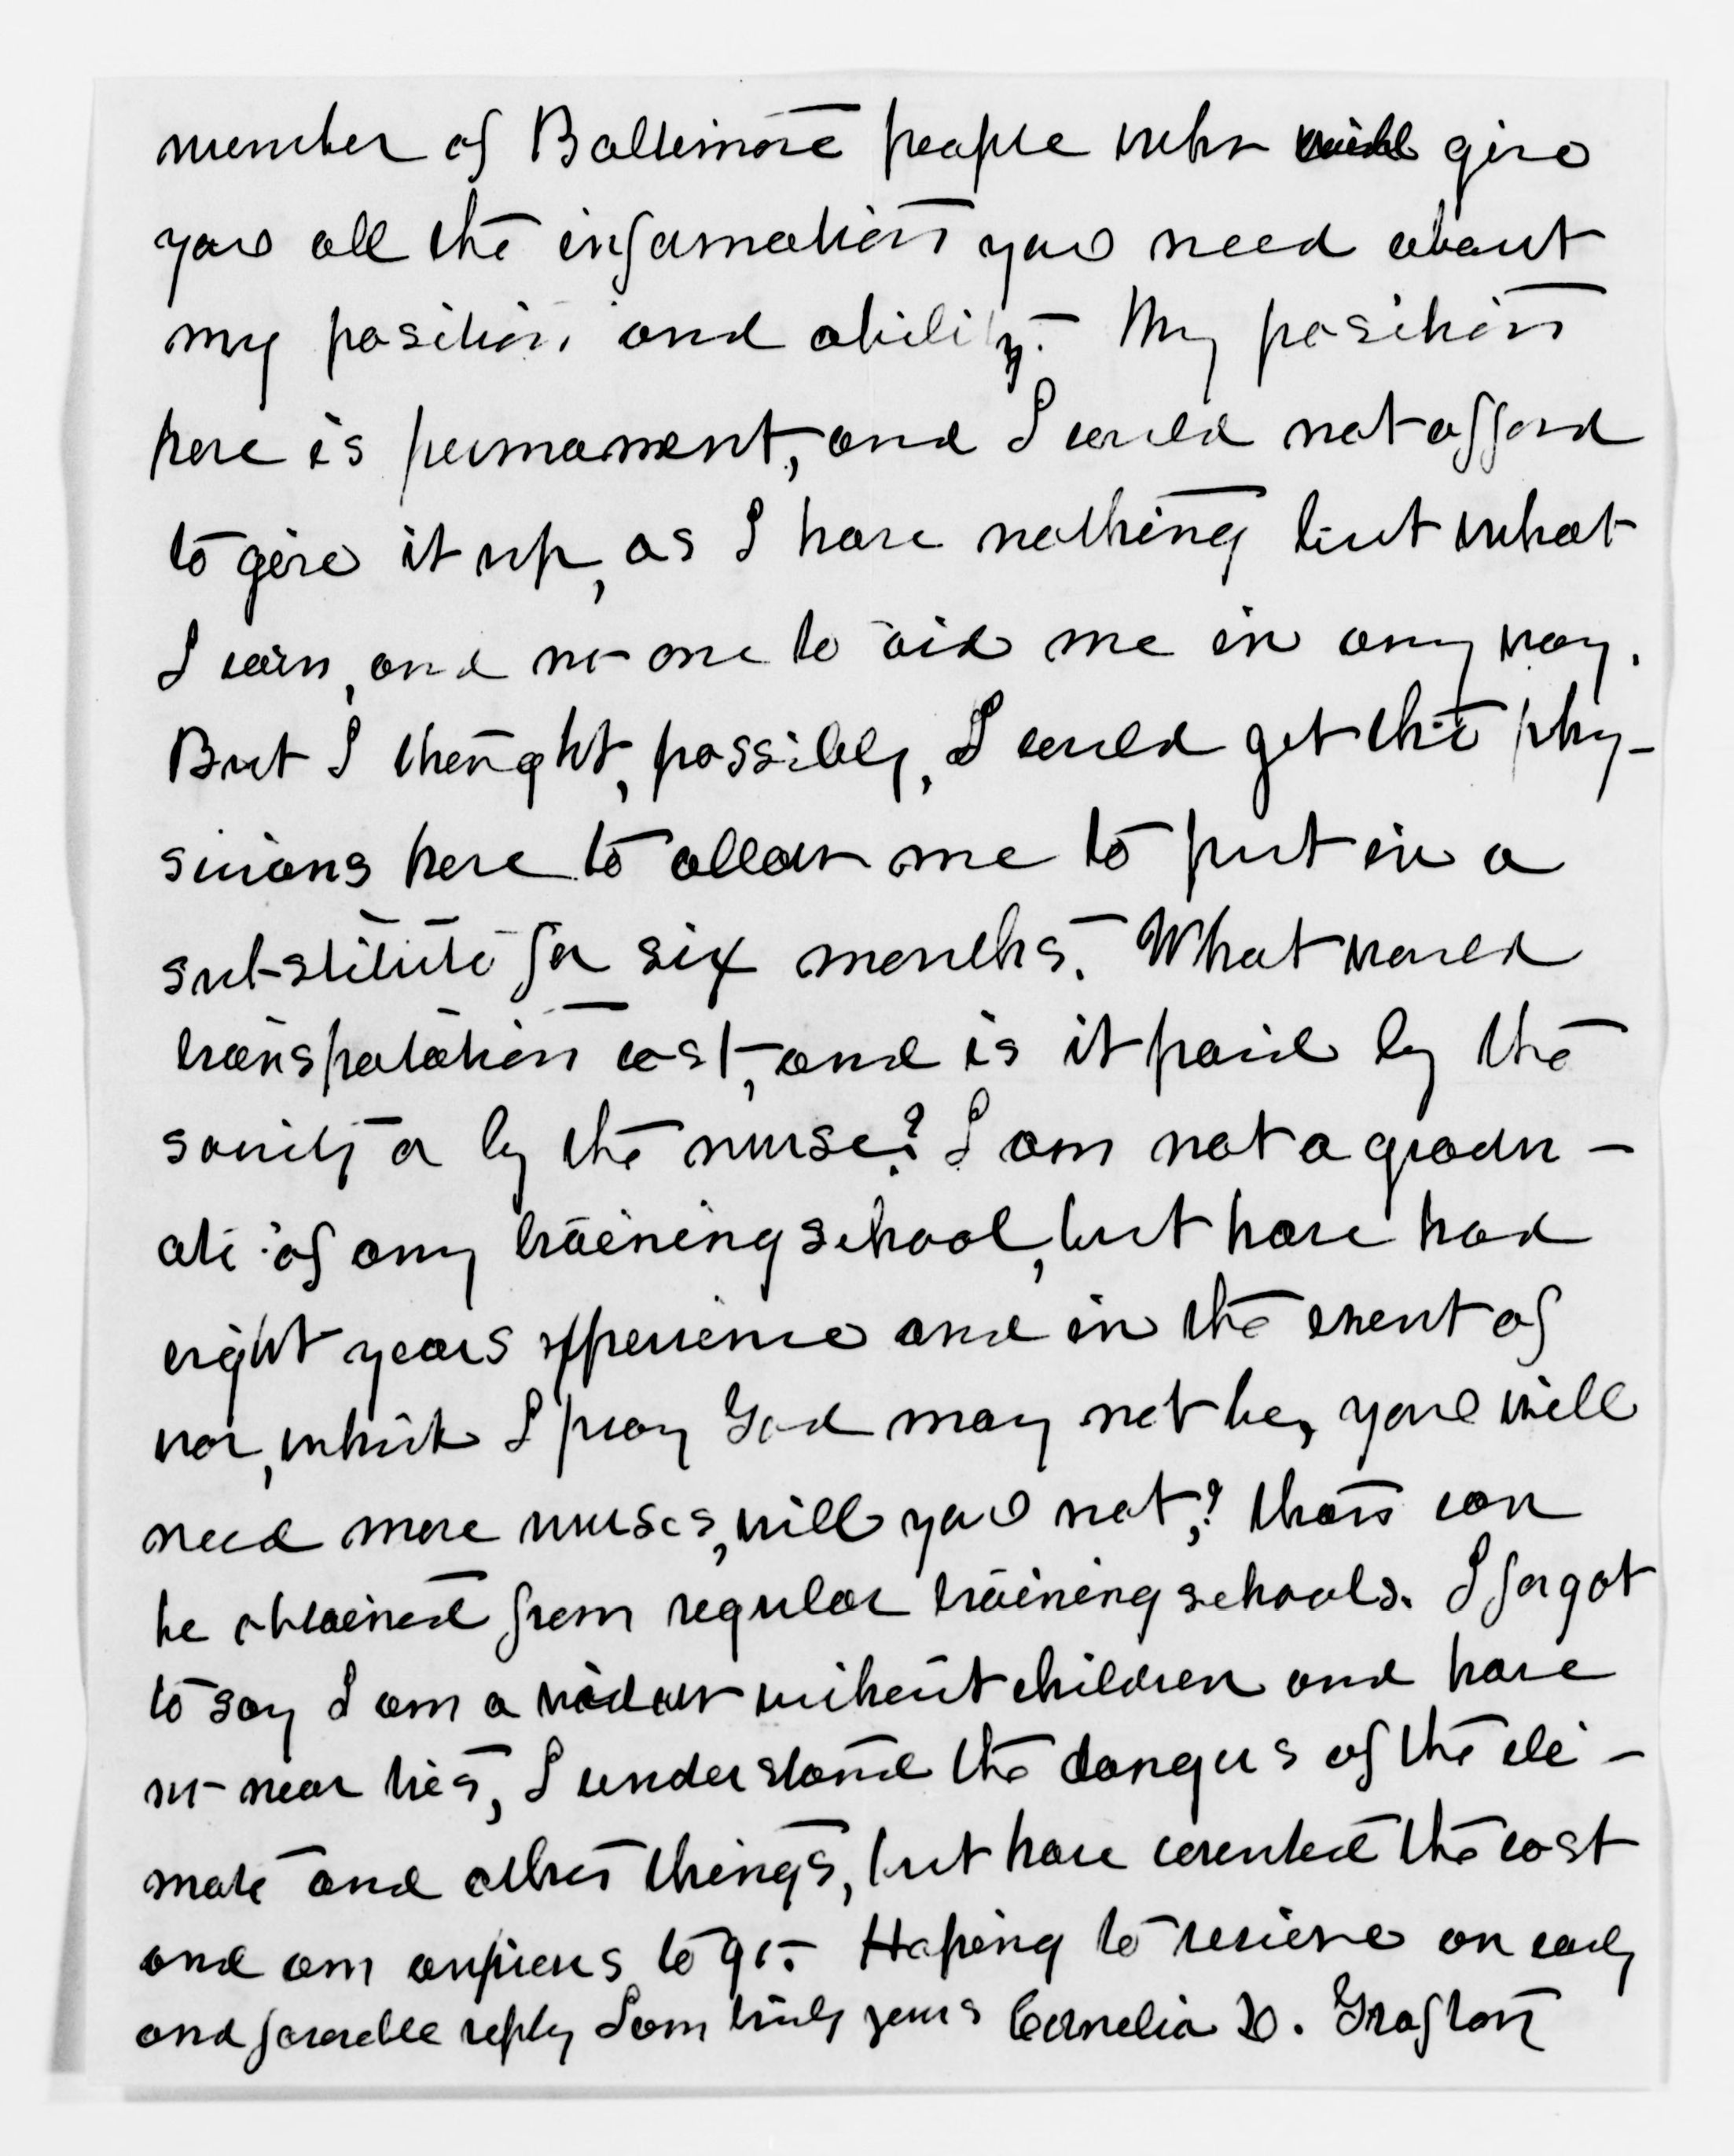 number of Baltimore people who will give
you all the information you need about
my position and ability. My position
here is permanent, and I could not afford
to give it up, as I have nothing but what
I earn, and no one to aid me in any way.
But I thought, possibly, I could get the phy-
sicians here to allow me to put in a
substitute for six months. What would
transportation cost, and is it paid by the
society or by the nurse? I am not a gradu-
ate of any training school, but have had
eight years experience and in the event of
war, which I pray God may not be, you will
need more nurses, will you not,? than can
be obtained from regular training schools. I forgot
to say I am a widow without children and have
no near ties, I understand the dangers of the cli-
mate and other things, but have counted the cost
and am anxious to go. Hoping to recieve an early
and favorable reply I am truly yours Cornelia D. Grafton